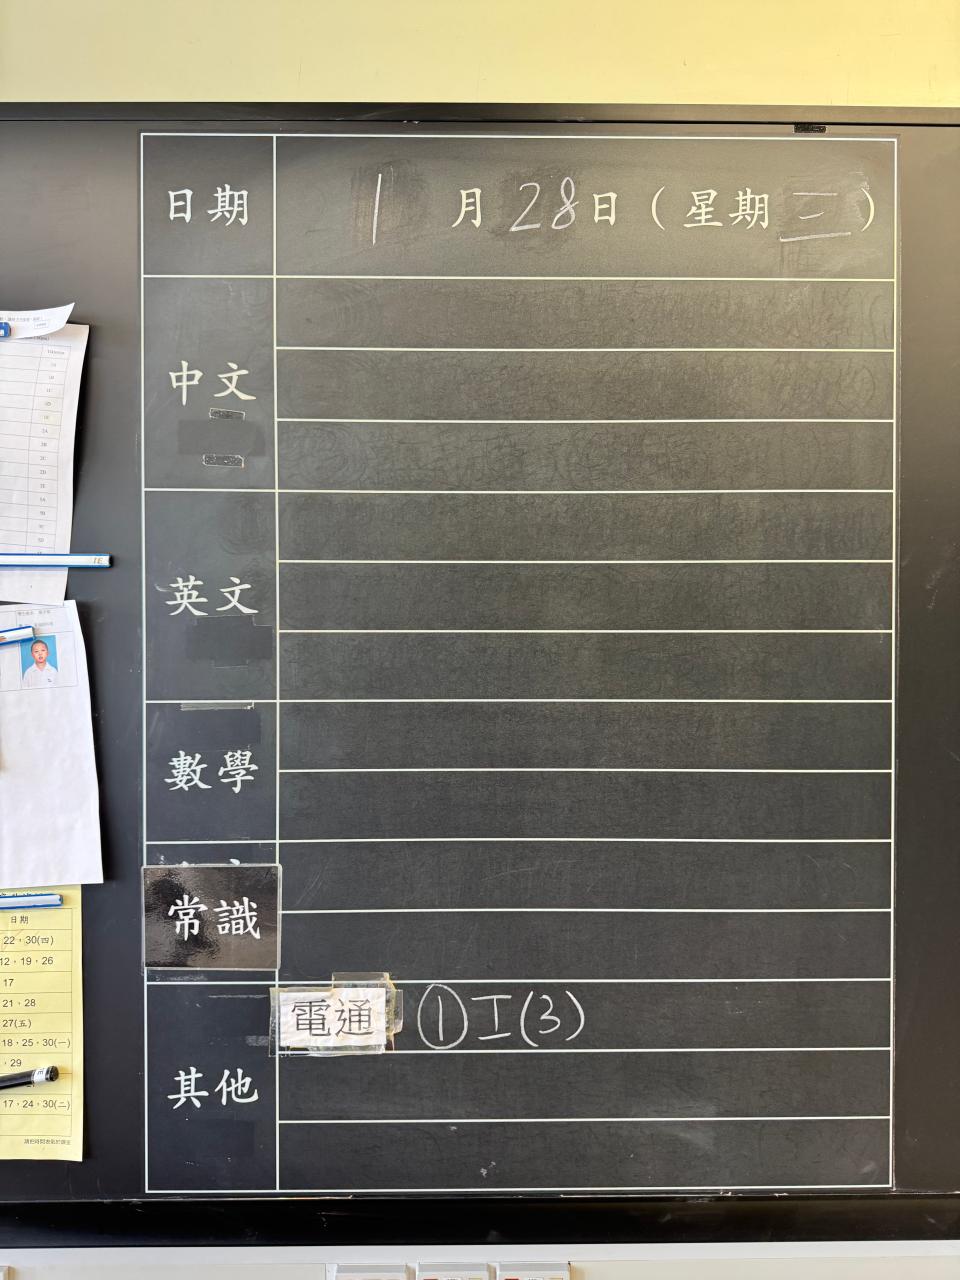 日期 1月28日（星期三）
中文
英文
數學
常識
電通 ①工(3)
其他
1E
日期
22，30(四)
12，19，26
17
21，28
27(五)
18，25，30(一)
，29
17，24，30(二)